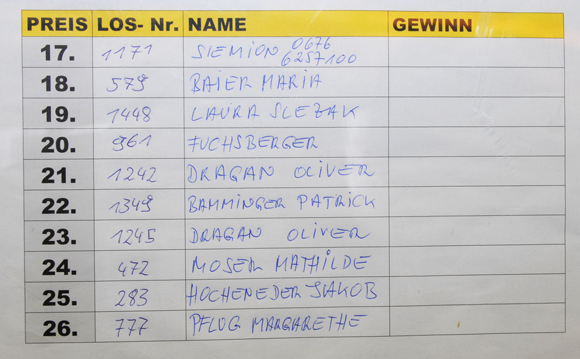 PREIS LOS- Nr. NAME GEWINN
17. 1171 SIEMION 0676 6257100
18. 579 BAIER MARIA
19. 1448 LAURA SLEZAK
20. 961 FUCHSBERGER
21. 1242 DRAGAN OLIVER
22. 1349 BAMMINGER PATRICK
23. 1245 DRAGAN OLIVER
24. 472 MOSER MATHILDE
25. 283 HOCHENEDER JAKOB
26. 777 PFLUG MARGARETHE